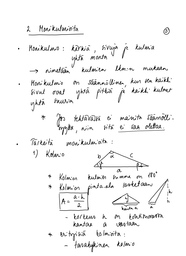 2. Monikulmioita
②
• Monikulmio: kärkiä, sivuja ja kulmia
yhtä monta
→ nimetään kulmien lkm:n mukaan
• Monikulmio on säännöllinen kun sen kaikki
sivut ovat yhtä pitkiä ja kaikki kulmat
yhtä suuria
Jos tehtävässä ei mainita säännölli-
syyttä niin sitä ei saa olettaa.
• Tärkeitä monikulmioita:
1) Kolmio
• Kolmion kulmien summa on 180°
• Kolmion pinta-ala lasketaan
A = a·h / 2
- korkeus h on kohtisuorassa
kantaa a vastaan
• erityisiä kolmioita:
- tasakylkinen kolmio